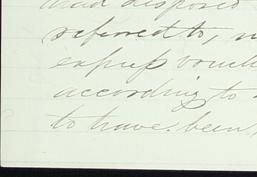 and disposed
referred to,
express vouch
according to
to have been,